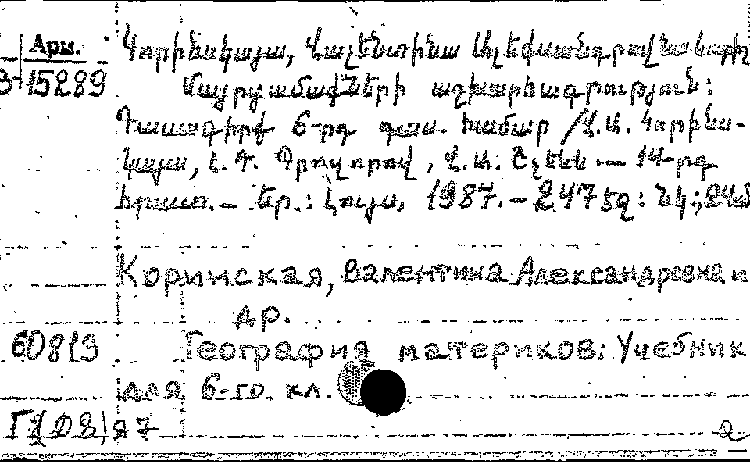 Արմ.
15289
Կորինսկայա, Վալենտինա Ալեքսանդրովնա և ուրիշ
Մայրցամաքների աշխարհագրություն:
Դասագիրք 6-րդ դաս. համար / Վ.Ա. Կորինս-
կայա, Լ. Դ. Պրոզորով, Վ. Ա. Շչենև. — 14-րդ
հրատ. — Եր.: Լույս, 1987. — 247 էջ: նկ.; 24սմ
Коринская, Валентина Александровна и
др.
60813 География материков: Учебник
для 6-го. кл.
87